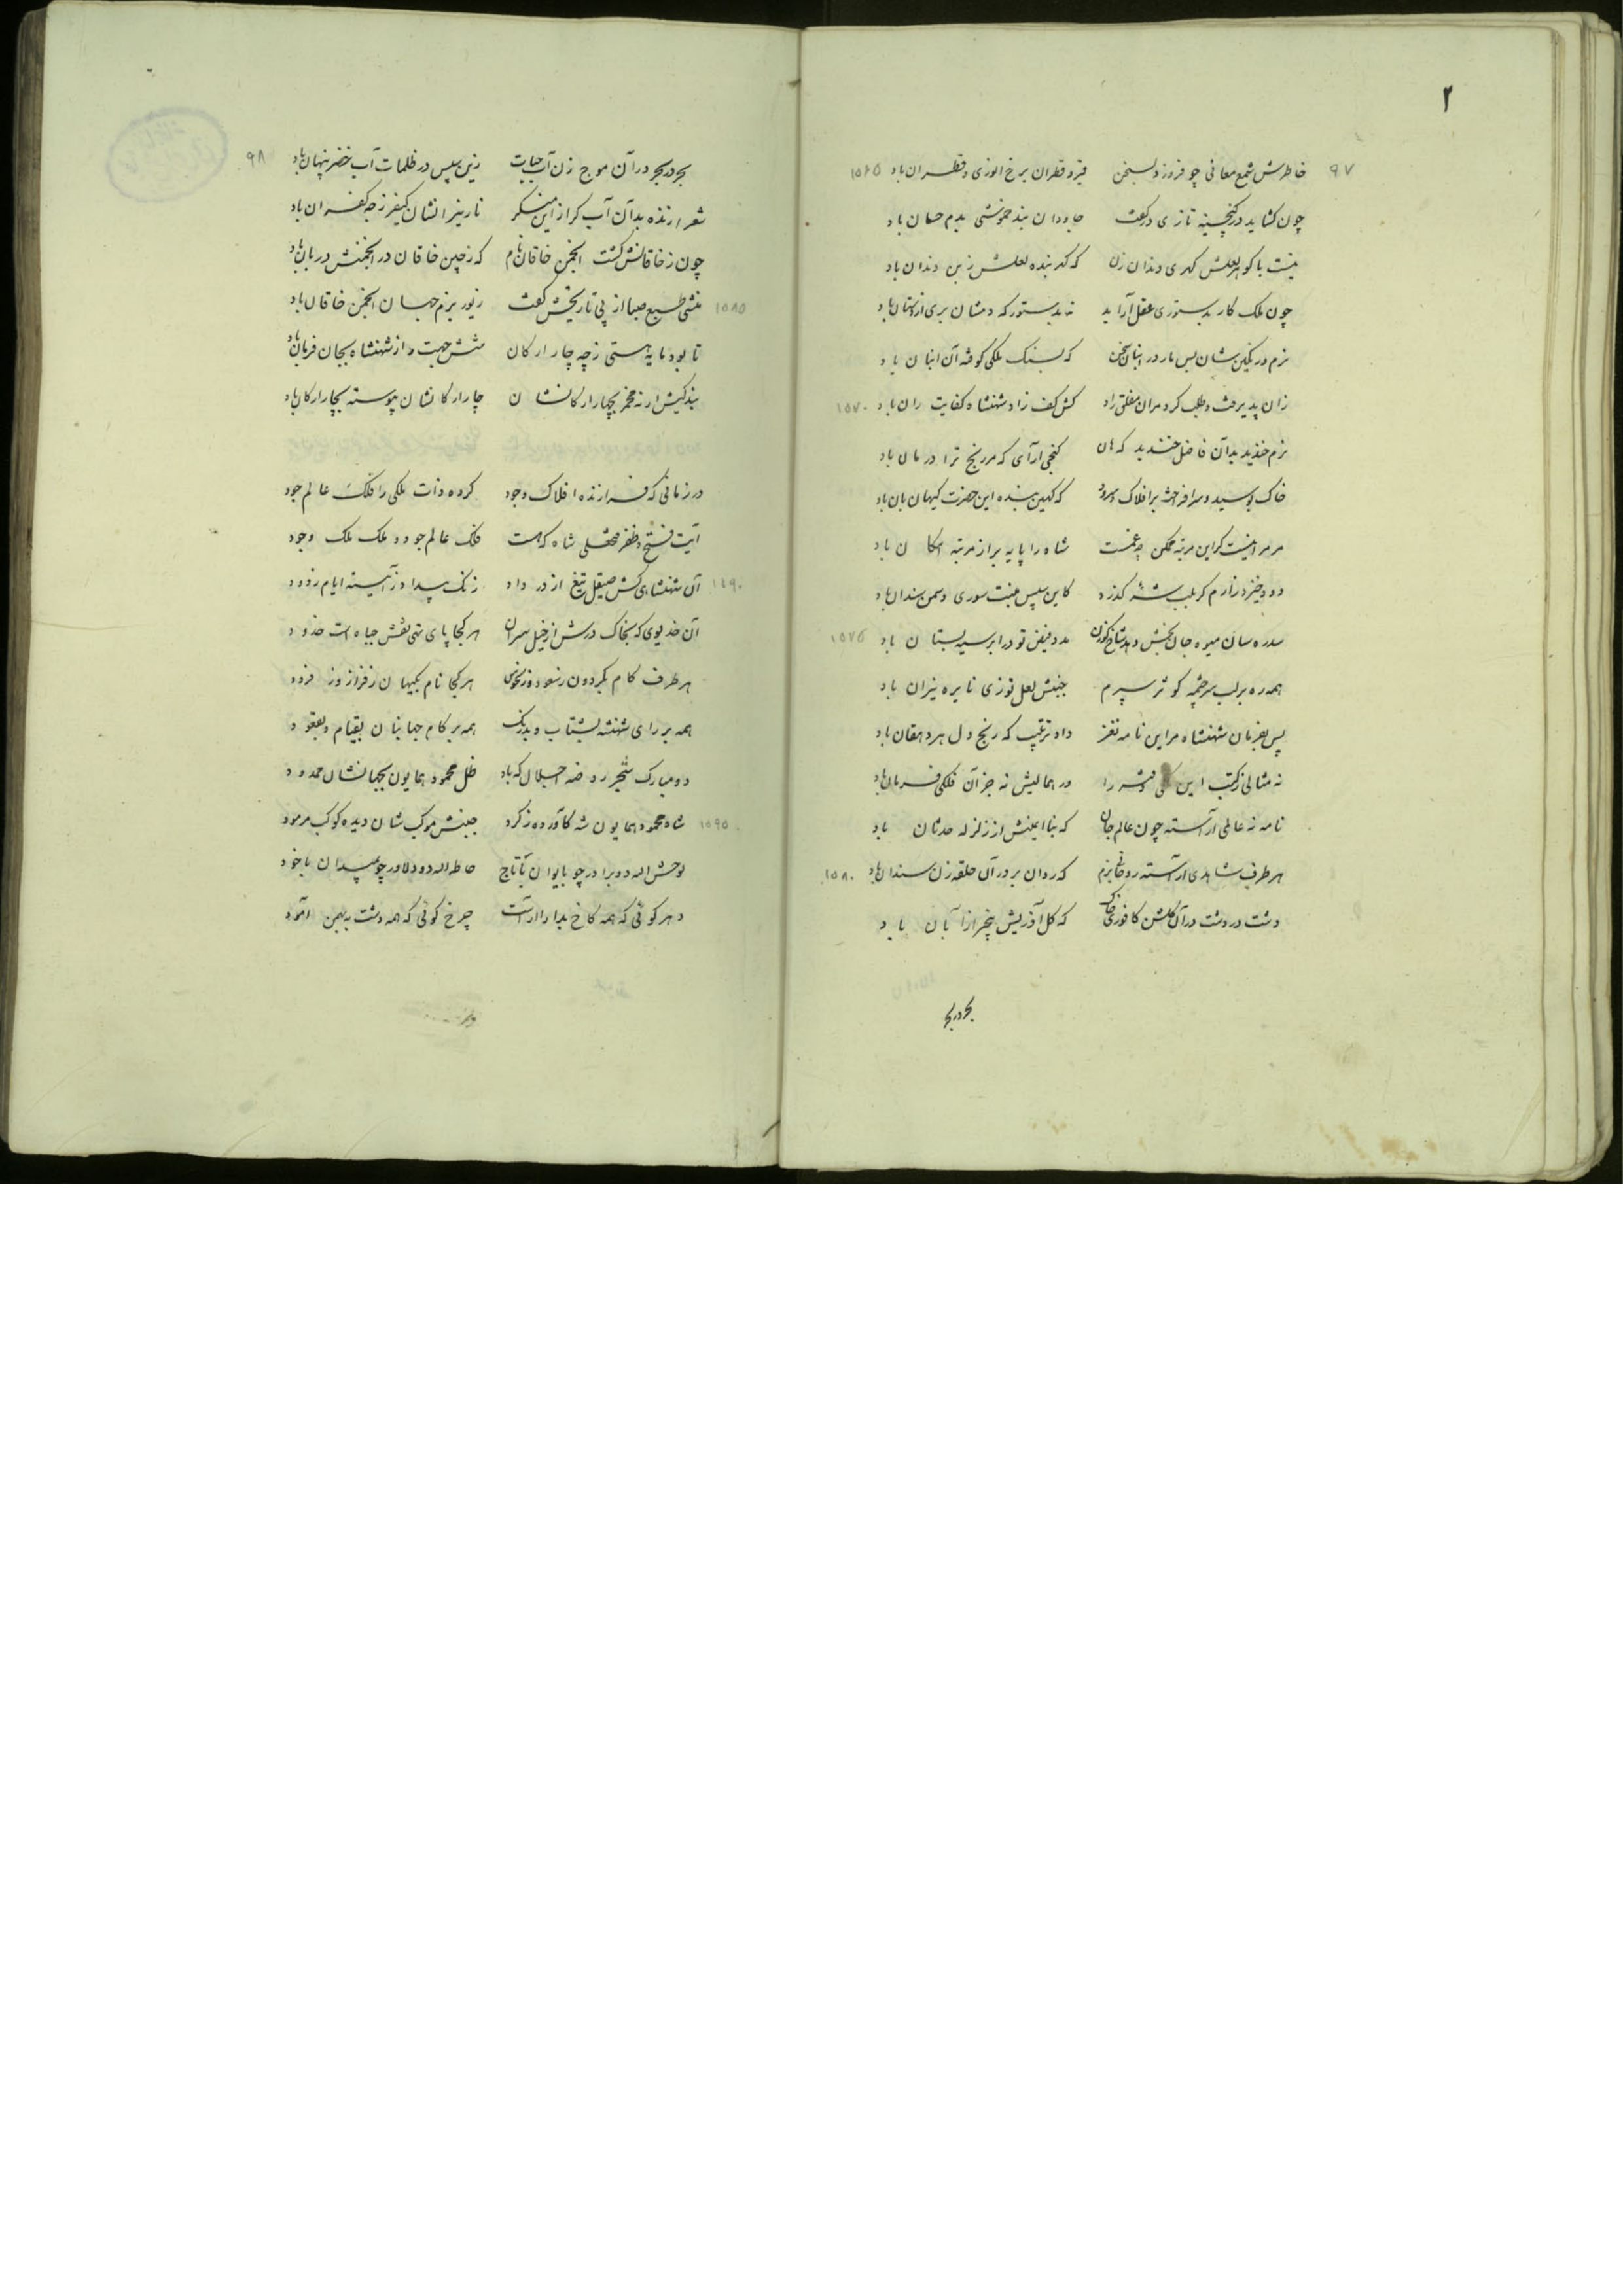 ۲
۹۷
خاطرش شمع معانی چو فروزد بسخن قیرو قطران برخ انوری و قطران باد ۱۵۶۵
چون کشاید در کنجینه تازی در کفت جاودان بند خموشی بدم حسان باد
نیست با کوهر لعلش کهری دندان زن که کهر بنده لعلش زبن دندان باد
چون ملک کار بدستوری عقل آراید نه بدستور که دمشان بری از دستان باد
نرم در بکین شان بس بار در انبان سخن که بسنک ملکی کوفته آن انبان باد
زان پذیرفت و طلب کرد مران مفلق راد کش کف زاد شهنشاه کفایت ران باد ۱۵۷۰
نرم خندید بدآن فاضل خندید که هان کنجی ارآی که مر رنج ترا درمان باد
خاک بوسید و سرافراخت برافلاک و سرود که کهین بنده این حضرت کیهان بان باد
مر مرا نیست کزاین مرتبه ممکن چه غمست شاه را پایه بر از مرتبه امکان باد
دود خیزد ز ارم کر بلب کذرد کاین سپس منبت سوری و سمن سندان باد
سدره سان میوه جان بخش دهد شاخ کوزن مدد فیض تو در ابر سیه بستان باد ۱۵۷۵
همه ره بر لب سرچشمه کوثر سپرم جنبش لعل توزی نایره نیران باد
پس بفرمان شهنشاه مراین نامه نغز داد ترتیب که رنج دل هر دهقان باد
نه مثالی ز کتب این را در همالیش نه جز آن فلکی فرمان باد
نامه نه عالمی آراسته چون عالم جان که بنا ایمنش از زلزله حدثان باد
هر طرف شاهدی آراسته روحانی بزم که روان بر در آن حلقه زن سندان باد ۱۵۸۰
دشت در دشت در آن کلشن کافوری خاک که کل آذریش بیخبر از آبان باد
بحر در بحر
۹۸
بحر در بحر در آن موج زن آب حیات زین سپس در ظلمات آب خضر پنهان باد
شعر ارزنده بدآن آب کر از این منکر نار نیرانشان کیفر زچه کفران باد
چون ز خاقانش کشت انجمن خاقان نام که زچین خاقان در انجمنش دربان باد
منشی طبع صبا از پی تاریخش کفت زیور بزم جهان انجمن خاقان باد ۱۵۸۵
تا بود مایه هستی زچه چار ارکان شش جهت و از شهنشاه بجان فرمان باد
بندکیش ار نه مخمر بچهار ارکانشان چار ارکانشان پیوسته بچار ارکان باد
در زمانی که فرازنده افلاک وجود کرده ذات ملکی را فلک عالم جود
آیت فتح و ظفر فتحعلی شاه که هست فلک عالم جود و ملک ملک وجود
آن شهنشاهی کش صیقل تیغ از در داد زنک بیداد ز آئینه ایام زدود ۱۵۹۰
آن خدیوی که بخاک درش از خیل سران هر کجا پای نهی نقش جباه است خدود
هر طرف کام بکردون هر کجا نام بکیهان
همه بر رای شهنشه بشتاب و بدرنک همه بر کام جهانبان بقیام و بقعود
دو مبارک شجر روضه اجلال که باد ظل محمود همایون بجهانشان ممدود
شاه محمود همایون شه کاورده ز کرد جنبش موکب شان دیده کوکب مرمود ۱۵۹۵
لوحش الله دو برادر چو بایوان با تاج حاطه الله دو دلاور چو بمیدان با خود
دهر کوئی که همه کاخ بدارا آراست چرخ کوئی که همه دشت ببهمن آمود